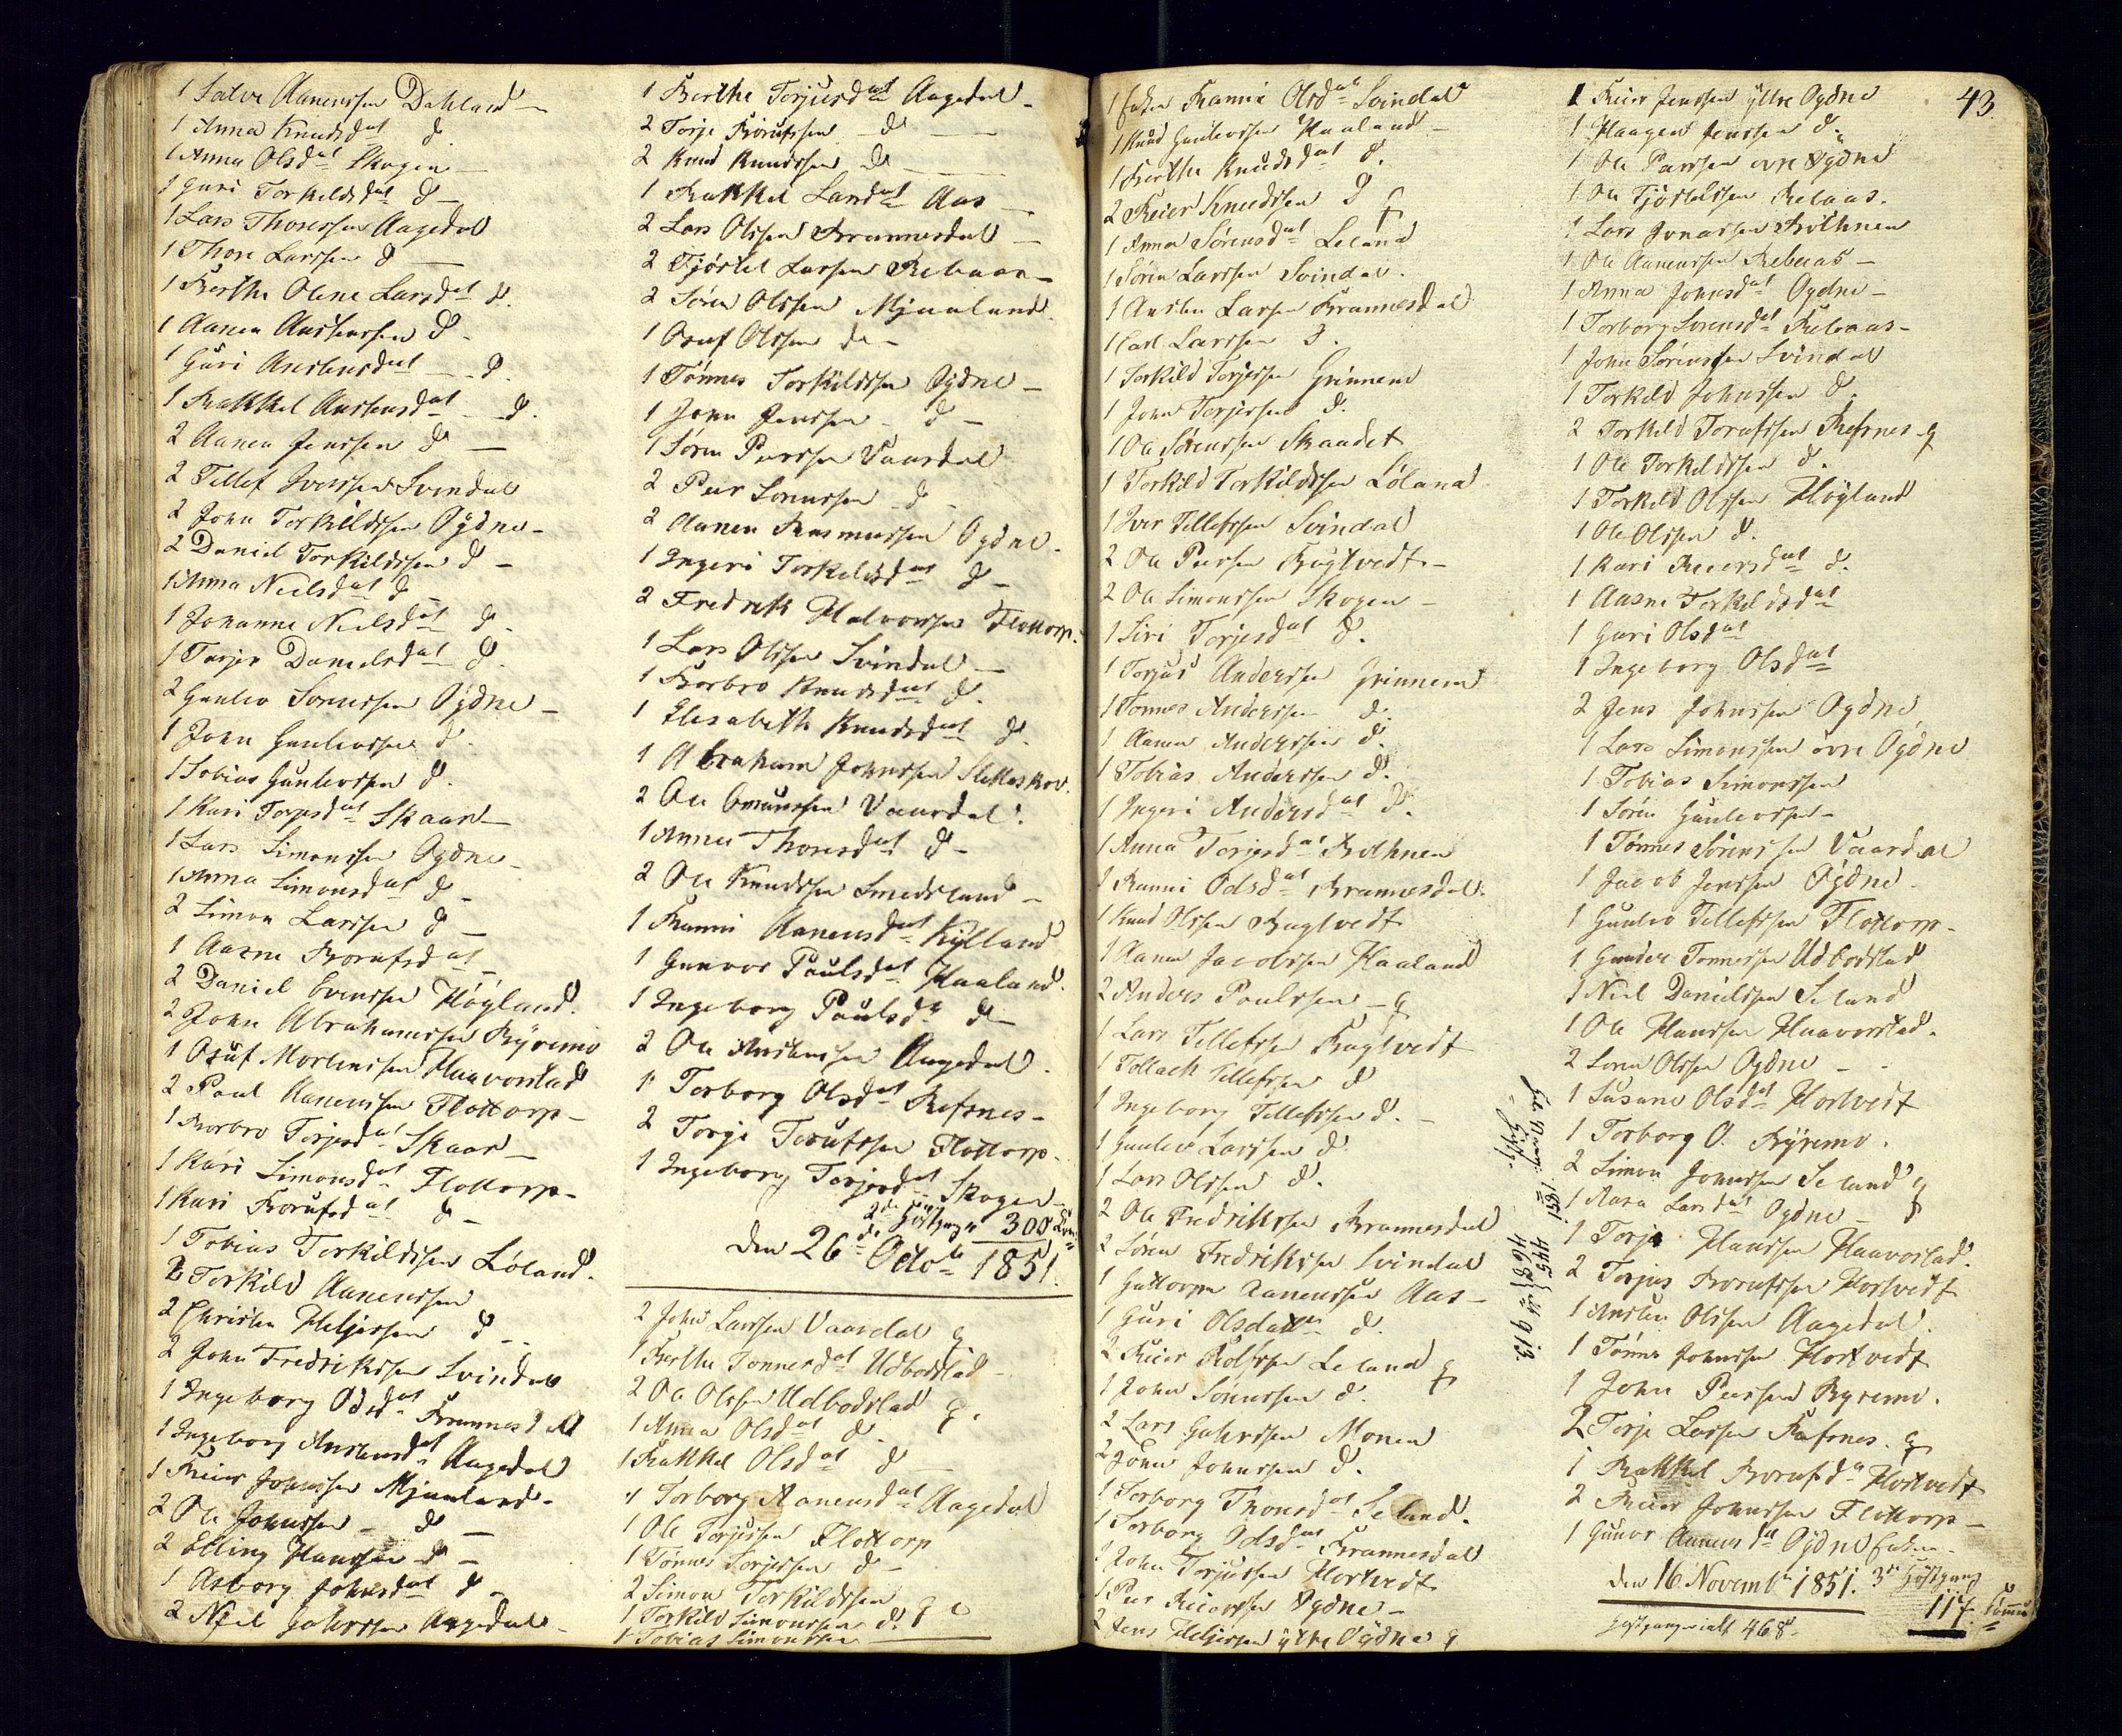 1 Salve Aanenssen Dahland –
1 Anna Knudsdat d
1 Anna Olsdat Skogen –
1 Guri Torkeldsdat d –
1 Lars Thoressen Aagedal
1 Thore Larssen d –
1 Berthe Oline Larsdat d.
1 Aanen Anstenssen d.
1 Guri Anstensdat – d.
1 Rakkel Anstensdat – d.
2 Aanen Jenssen d –
2 Tellef Iverssen Svindal
2 John Torkildssen Øydne –
2 Daniel Torkildssen d –
1 Anna Neilsdat d –
1 Johanne Neilsdat d –
1 Torjer Danielsdat d.
2 Gunlev Sørenssen Øydne –
1 John Gunlevssen d.
1 Tobias Gunlevssen d.
1 Kari Torjesdat Skaar –
1 Lars Simonssen Øydne –
1 Anna Simonsdat d –
2 Simon Larssen d –
1 Aasne Brorufsdat –
2 Daniel Evenssen Høyland.
2 John Abrahamssen Byremo
1 Osuf Mortenssen Haavorstad
2 Paul Aanenssen Flottorp –
1 Borbro Torjesdat Skaar –
1 Kari Simonsdat Flottorp –
1 Kari Brorufsdat d –
1 Tobias Torkildssen Løland.
2 Torkild Aanenssen
2 Christen Heljessen d –
2 John Fredrikssen Svindal
1 Ingeborg Odsdat Brannesdal
1 Ingeborg Anstensdat Aagedal
1 Reier Johnssen Mjaaland –
2 Ole Johnssen – d –
2 Elling Hanssen d –
1 Asborg Johnsdat d –
2 Neil Gahrssen Aagedal –
1 Berthe Torjusdat Aagedal –
2 Torje Brorufssen – d –
2 Knud Knudssen d –
1 Rakkel Larsdat Aas –
2 Lars Olssen Brannesdal –
2 Kjøstel Larssen Rebaas –
2 Sören Olssen Mjaaland.
1 Osuf Olssen d –
1 Tönnes Torkildssen Øydne –
1 John Jenssen – d –
1 Sören Peerssen Vaardal
2 Peer Sörenssen d –
2 Aanen Rasmussen Øydne –
1 Ingeri Torkeldsdat d –
2 Fredrik Halvorssen Flottorp.
1 Lars Olssen Svindal –
1 Borbro Knudsdat d.
1 Elisabeth Knudsdat d.
1 Abraham Johnssen Slettaskov.
2 Ole Omundssen Vaardal.
1 Anne Thoresdat d –
2 Ole Knudssen Smedsland –
1 Ranni Aanensdat Kylland
1 Gunvor Paulsdat Haaland.
1 Ingeborg Paulsdr d –
2 Ole Anstenssen Aagedal.
1 Torborg Olsdat Refsnes –
2 Torje Torufssen Flottorp –
1 Ingeborg Torjesdat Skogen –
2den Höstgang 300
Den 26de Octobr 1851.
2 John Larssen Vaardal G
1 Berthe Tönnesdat Udbodstad –
2 Ole Olssen Udbodstad G.
1 Anna Olsdat d.
1 Rakkel Olsdat d –
1 Torborg Aanensdat Aagedal
1 Ole Torjussen Flottorp
1 Tönnes Torjessen d –
2 Simon Torkildssen
1 Torkild Simonssen d.
1 Tobias Simonssen –
1 Enken Ranni Olsdat Svindal
1 Knud Gunlevssen Haaland –
1 Berthe Knudsdat d.
2 Reier Knudssen d G
1 Anna Sørensdat Leland
1 Søren Larssen Svindal.
1 Ansten Larsen Brannesdal
1 Carl Larssen d.
1 Torkild Torjessen Grinnem
1 John Torjessen d.
1 Ole Sørenssen Skaadet
1 Torkild Torkildssen Løland
1 Iver Tellefssen Svindal
2 Ole Peersen Bugtvedt –
2 Ole Simonssen Skogen –
1 Siri Torjesdat d.
1 Torjus Anderssen Grinnem
1 Tønnes Anderssen d.
1 Aanen Anderssen d.
1 Tobias Anderssen d.
1 Ingeri Andersdat d.
1 Anna Torjesdat Bothnen
1 Ranni Odsdat Brannesdal.
1 Knud Olssen Bugtvedt
1 Aanen Jacobssen Haaland
2 Anders Paulssen – G
1 Lars Tellefssen Bugtvedt
1 Tollach Tellefssen d
1 Ingeborg Tellefssen d. –
1 Gunlev Larssen d
1 Lars Olssen d.
2 Ole Fredrikssen Brannesdal
2 Sören Fredrikssen Svindal
1 Guttorm Aanenssen Aas –
1 Guri Olsdatter d.
2 Reier Rolfssen Leland G
1 John Sörenssen d.
2 Lars Gahrssen Monen
2 John Johnssen d.
1 Torborg Thoresdat Seland.
1 Torborg Odsdat Brannesdal
1 John Torjussen Hortvedt
1 Peer Reierssen Øydne –
2 Jens Heljessen ytre Øydne G
1851. 445
468 913.
43.
1 Reier Jenssen ytre Øydne
1 Haagen Jenssen d.
1 Ole Peerssen øvre Øydne
1 Ole Kjøstelssen Rebaas.
1 Lars Jonassen Bothnen
1 Ole Aanenssen Rebaas –
1 Anna Johnsdat Øydne –
1 Torborg Sorensdat Rebaas –
1 John Sørenssen Svindal
1 Torkild Johnssen d.
2 Torkild Torufssen Refsnes G
1 Ole Torkildssen d.
1 Torkild Olssen Høyland
1 Ole Olssen d.
1 Kari Reiersdat d.
1 Aasne Torkildsdat
1 Guri Olsdat
1 Ingeborg Olsdat
2 Jens Johnssen Øydne
1 Lars Simonssen øvre Øydne
1 Tobias Simonssen
1 Sören Gunlevssen –
1 Tønnes Sörenssen Vaardal
1 Jacob Jenssen Øydne
1 Gunlev Tellefssen Flottorp –
1 Gunder Tønnessen Udbodstad
1 Neil Danielssen Seland
1 Ole Hanssen Haavorstad.
2 Soren Olssen Øydne –
1 Susane Olsdat Hortvedt
1 Torborg O. Byremo.
2 Simon Johnssen Seland G
1 Aasa Larsdat Øydne –
1 Torje Hanssen Haavorstad.
2 Torjus Brorufssen Hortvedt
1 Ansten Olssen Aagedal.
1 Tönnes Johnssen Hortvedt
1 John Peerssen Byremo.
2 Torje Larssen Refsnes. G
1 Rakkel Brorufsdr Hortvedt
2 Reier Johnssen Flottorp –
1 Gunvor Aanensdat Øydne Enken –
Den 16 Novembr 1851. 3die Höstgang
Höstgangen ialt 468. 117